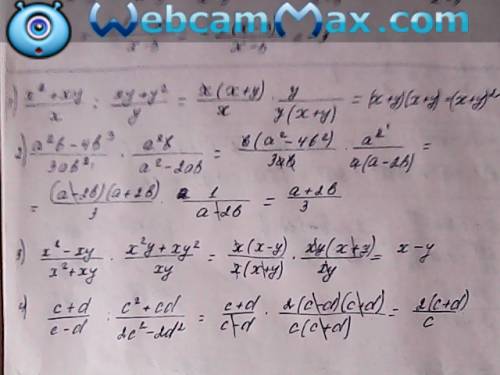 WebcamMax.com
1) (x² + xy)/x : (xy + y²)/y = x(x+y)/x · y/y(x+y) = (x+y)(x+y) = (x+y)²
2) (a²b - 4b³)/3ab² · a²b/(a² - 2ab) = b(a² - 4b²)/3ab · a²/a(a-2b) =
= (a-2b)(a+2b)/3 · 1/(a-2b) = (a+2b)/3
3) (x² - xy)/(x² + xy) · (x²y + xy²)/xy = x(x-y)/x(x+y) · xy(x+y)/xy = x-y
4) (c+d)/(c-d) : (c² + cd)/(2c² - 2d²) = (c+d)/(c-d) · 2(c-d)(c+d)/c(c+d) = 2(c+d)/c